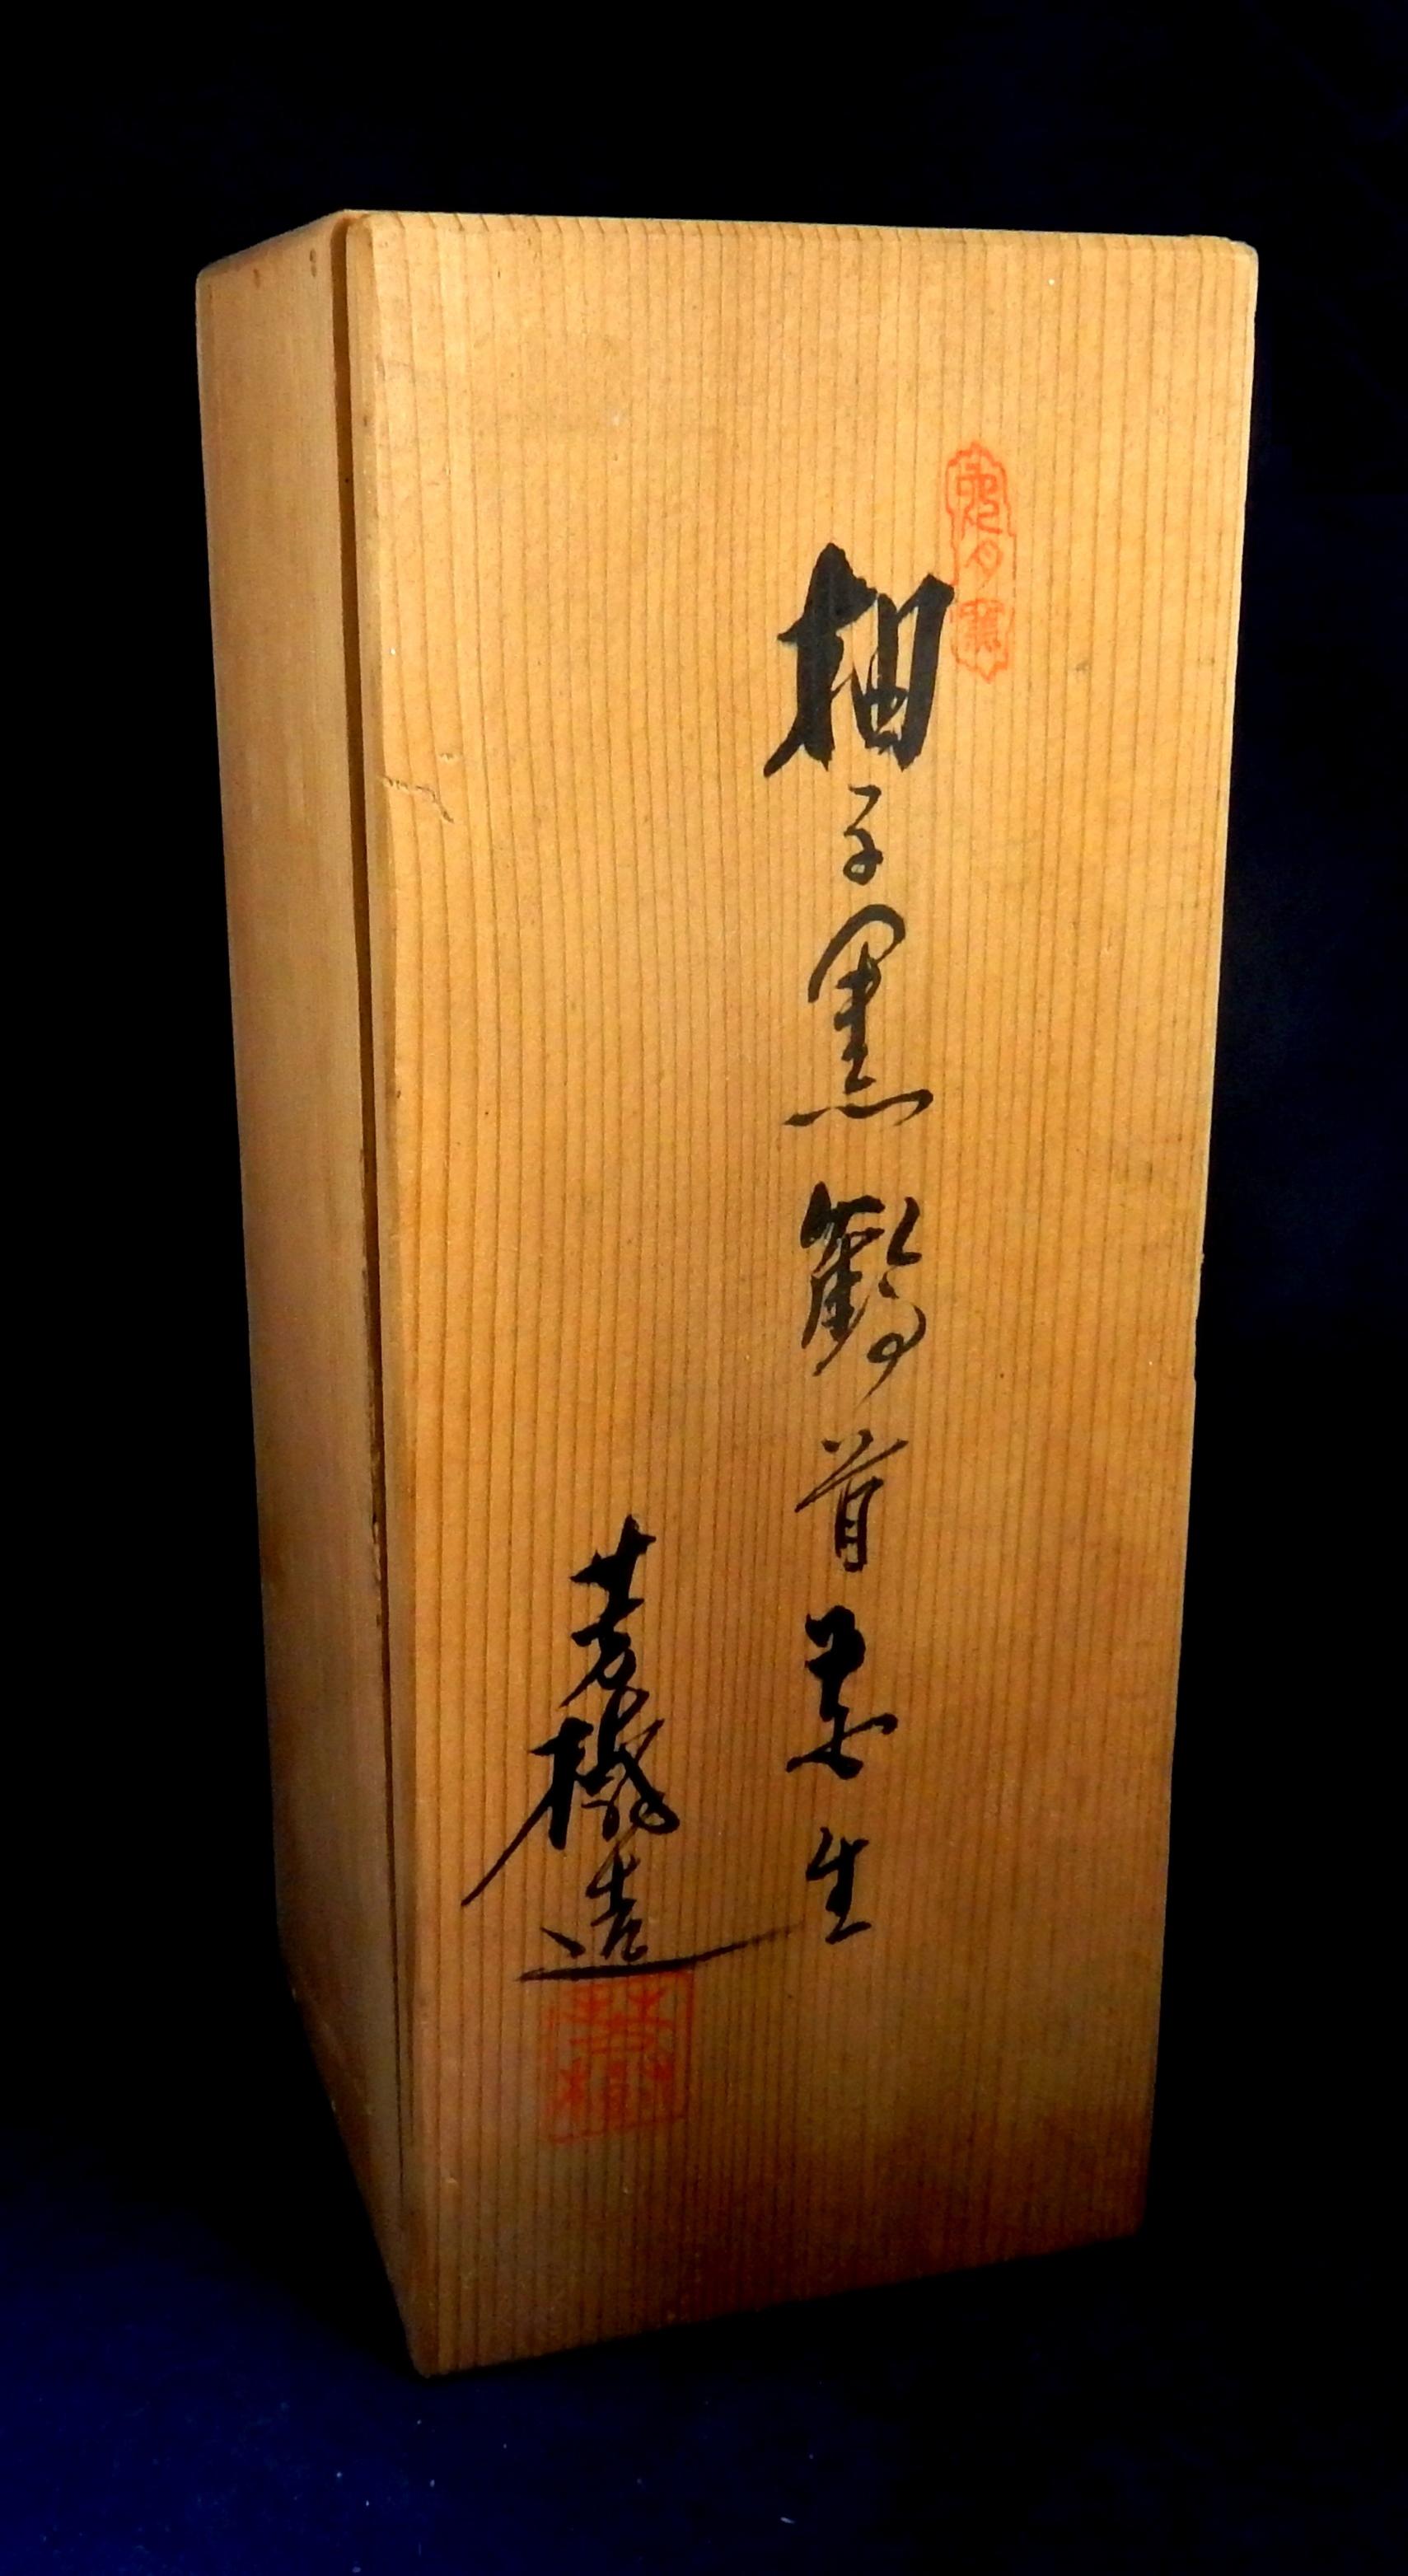 柚子黒鶴首花生
芳樹造
芳樹